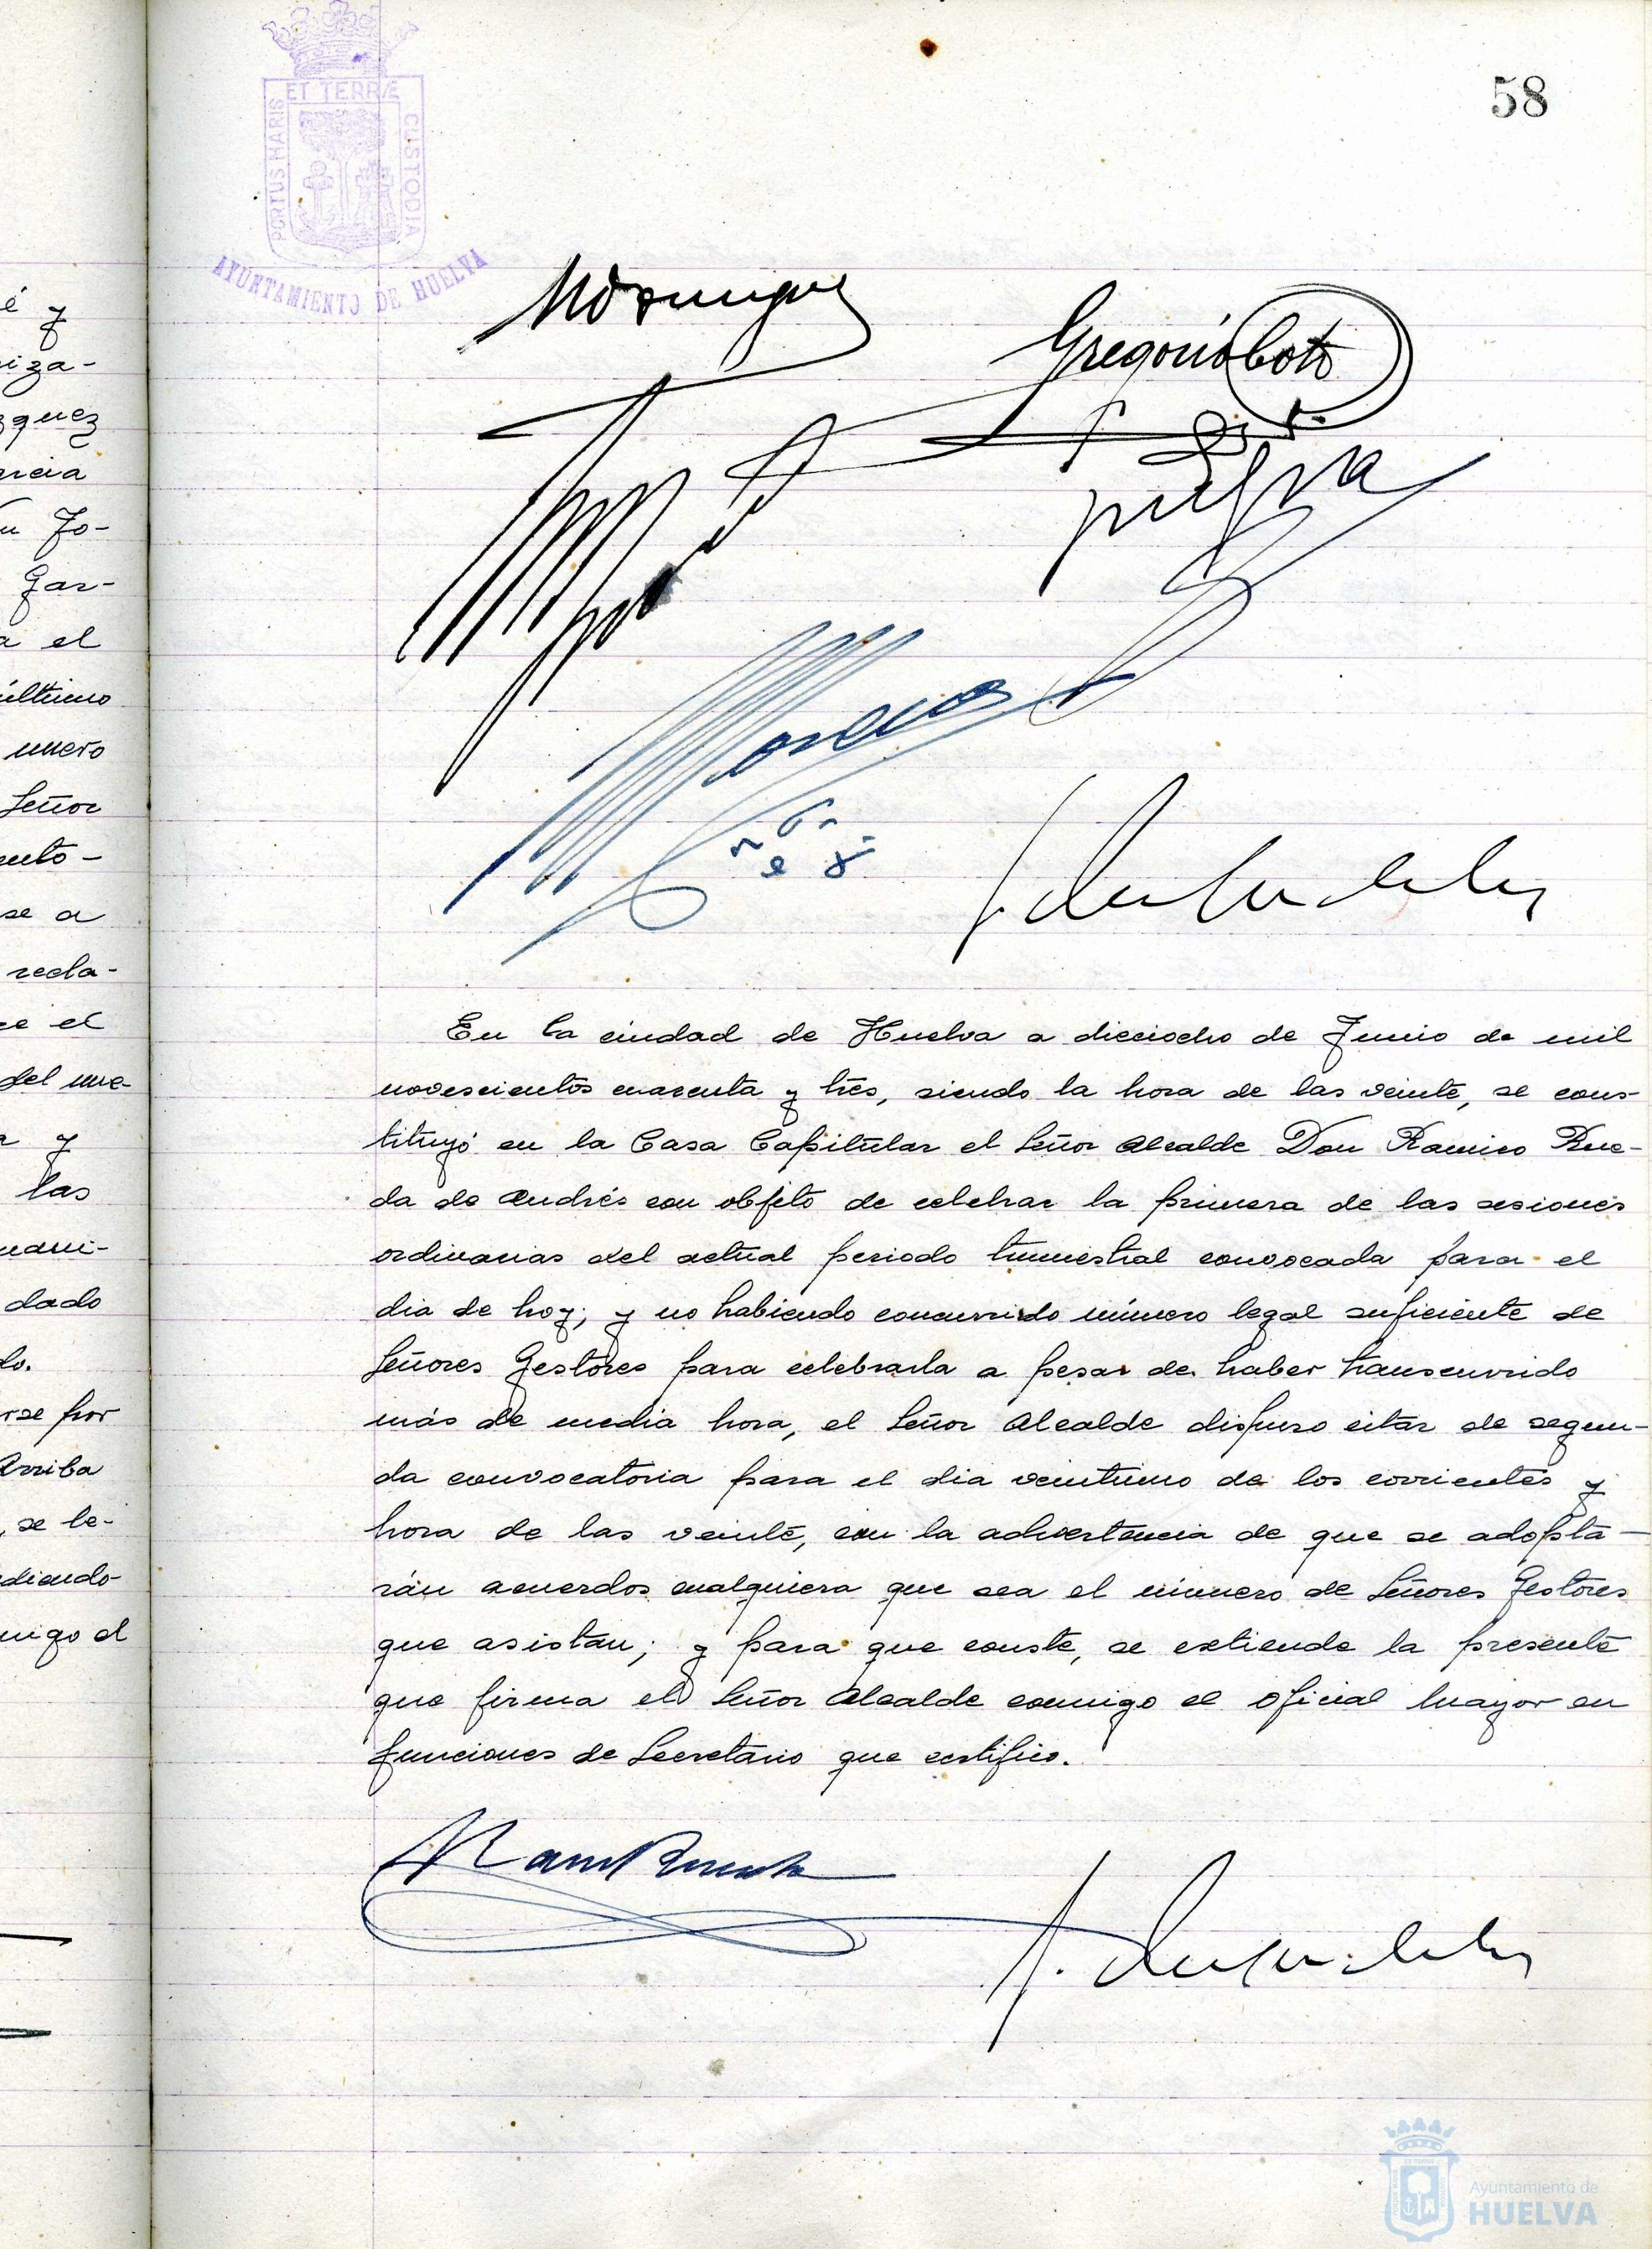 58
ET TERRÆ
PORTUS MARIS
CUSTODIA
AYUNTAMIENTO DE HUELVA
é y
riza-
zquez
arcia
Jo-
Gar-
a el
último
unero
Señor
ento-
se a
recla-
ce el
del me-
y
las
dado
do.
rse por
Arriba
, se le-
diendo
migo el
Gregorio Coto
En la ciudad de Huelva a dieciocho de Junio de mil
novescientos cuarenta y tres, siendo la hora de las veinte, se cons-
tituyó en la Casa Capitular el Señor Alcalde Don Ramiro Rue-
da de Andrés con objeto de celebrar la primera de las sesiones
ordinarias del actual periodo trimestral convocada para el
dia de hoy; y no habiendo concurrido número legal suficiente de
Señores Gestores para celebrarla a pesar de haber transcurrido
más de media hora, el Señor Alcalde dispuso citar de segun-
da convocatoria para el dia veintiuno de los corrientes y
hora de las veinte, con la advertencia de que se adopta-
rán acuerdos cualquiera que sea el número de Señores Gestores
que asistan; y para que conste, se extiende la presente
que firma el Señor Alcalde conmigo el Oficial Mayor en
funciones de Secretario que certifico.
Ayuntamiento de
HUELVA